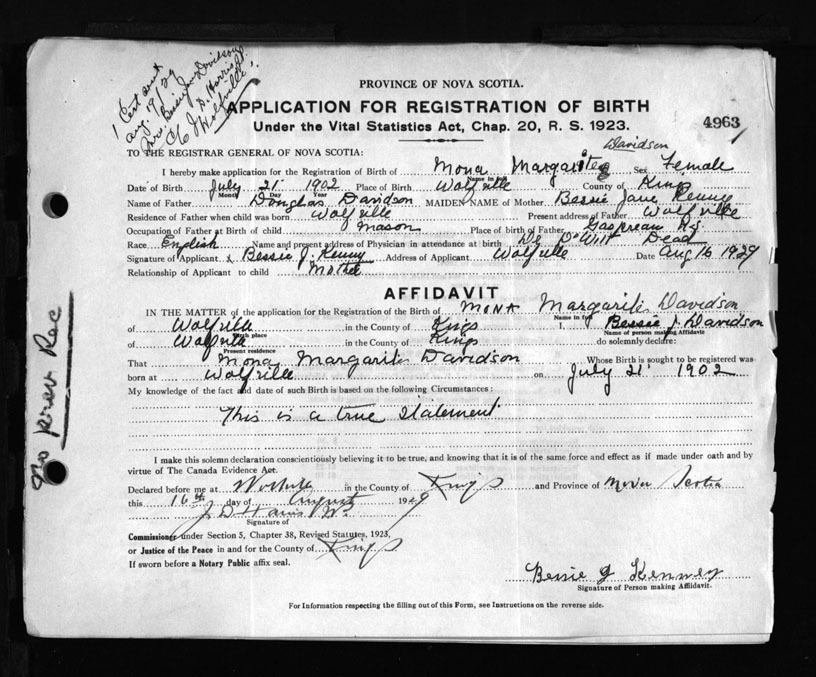 1 Cert sent
Aug. 19/29
Mrs. Bessie J. Davidson
c/o J. D. Harris
Wolfville.
PROVINCE OF NOVA SCOTIA.
APPLICATION FOR REGISTRATION OF BIRTH
4963
Under the Vital Statistics Act, Chap. 20, R. S. 1923.
Davidson
TO THE REGISTRAR GENERAL OF NOVA SCOTIA:
I hereby make application for the Registration of Birth of Mona Margarite Sex Female
Name in full
Date of Birth July 21 1902 Place of Birth Wolfville County of Kings
Month Day Year
Name of Father Douglas Davidson MAIDEN NAME of Mother Bessie Jane Kenny
Residence of Father when child was born Wolfville Present address of Father Wolfville
Occupation of Father at Birth of child mason Place of birth of Father Gaspreau Kgs.
Race English Name and present address of Physician in attendance at birth Dr DeWitt Dead
Signature of Applicant x Bessie J. Kenny Address of Applicant Wolfville Date Aug 16 1929
Relationship of Applicant to child Mother
AFFIDAVIT
IN THE MATTER of the application for the Registration of the Birth of MONA Margarite Davidson
Name in full
of Wolfville in the County of Kings I, Bessie J. Davidson
Birth place Name of person making Affidavit
of Wolfville in the County of Kings do solemnly declare:
Present residence
That Mona Margarite Davidson Whose Birth is sought to be registered was
born at Wolfville on July 21 1902
My knowledge of the fact and date of such Birth is based on the following Circumstances:
This is a true statement
No prev Rec
I make this solemn declaration conscientiously believing it to be true, and knowing that it is of the same force and effect as if made under oath and by
virtue of The Canada Evidence Act.
Declared before me at Wolfville in the County of Kings and Province of Nova Scotia
this 16th day of August 1929
J D Harris
Signature of
Commissioner under Section 5, Chapter 38, Revised Statutes, 1923,
or Justice of the Peace in and for the County of Kings
If sworn before a Notary Public affix seal.
Bessie J Kenney
Signature of Person making Affidavit.
For Information respecting the filling out of this Form, see Instructions on the reverse side.